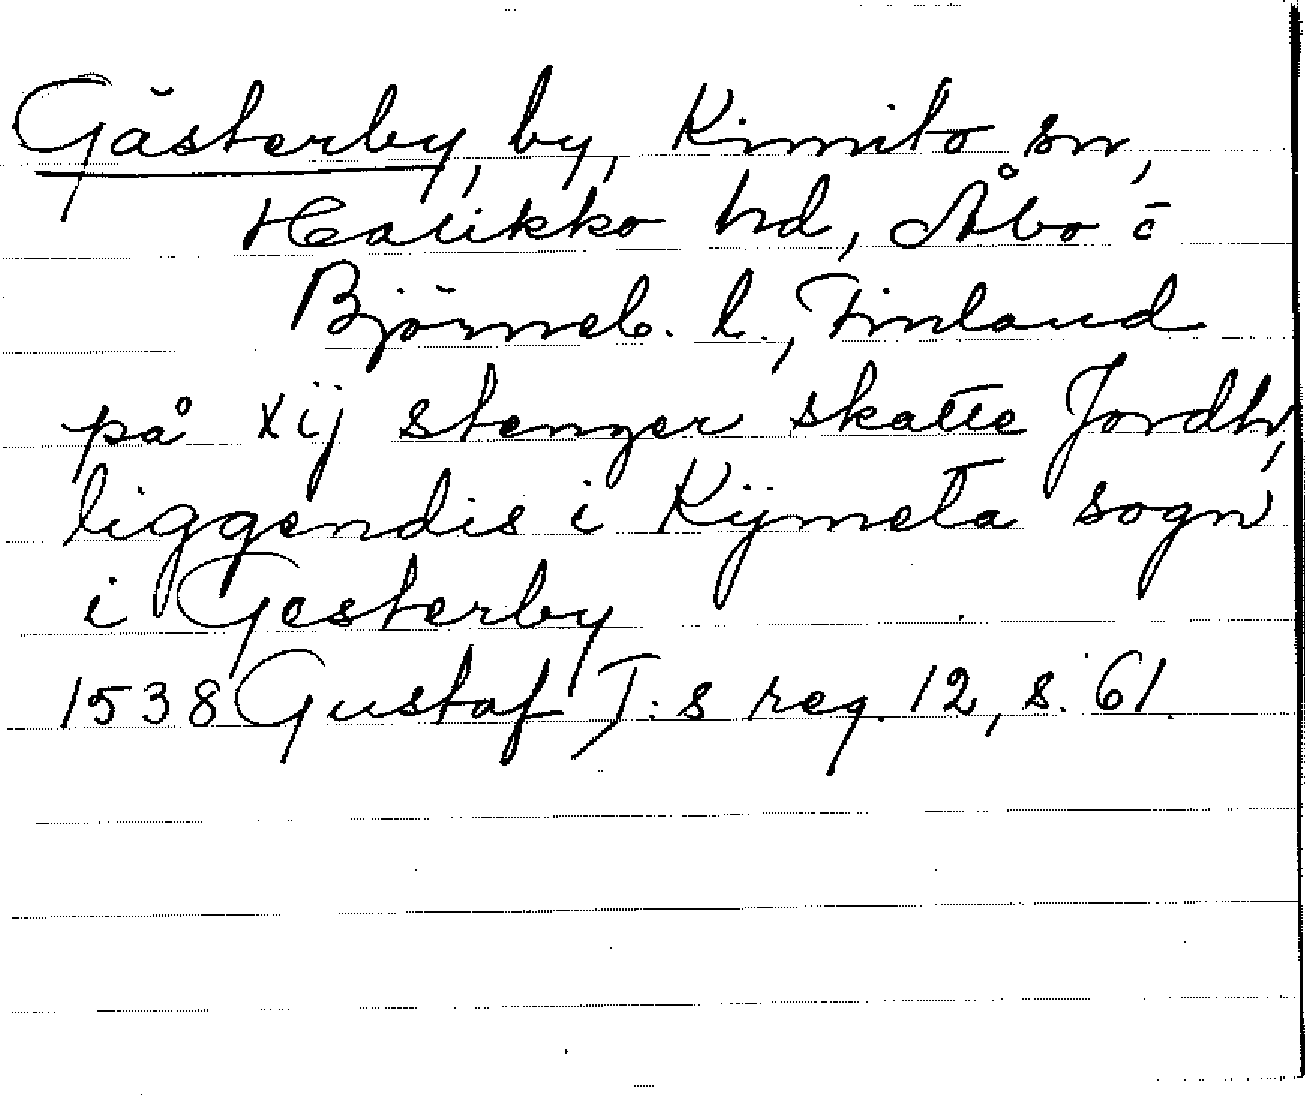 Gästerby, by, Kimito sn,
Halikko hd, Åbo o
Björneb. l., Finland
på xij stenger skatte Jordh,
liggendis i Kijmeta sogn
i Gesterby
1538 Gustaf I:s reg. 12, s. 61.